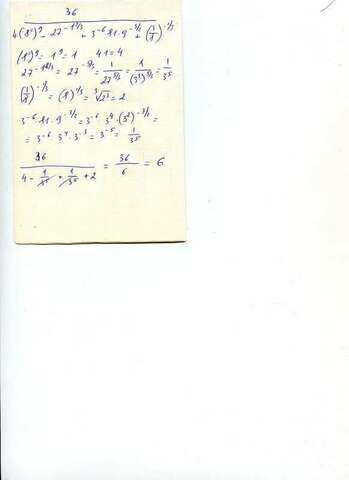 36
4(8⁰)⁹ - 27^(-1 2/3) + 3⁻⁶·81·9^(-3/2) + (1/8)^(-1/3)
(8⁰)⁹ = 1⁹ = 1 4·1 = 4
27^(-1 2/3) = 27^(-5/3) = 1/27^(5/3) = 1/(3³)^(5/3) = 1/3⁵
(1/8)^(-1/3) = (8)^(1/3) = ³√2³ = 2
3⁻⁶·81·9^(-3/2) = 3⁻⁶·3⁴·(3²)^(-3/2) =
= 3⁻⁶·3⁴·3⁻³ = 3⁻⁵ = 1/3⁵
36/(4 - 1/3⁵ + 1/3⁵ + 2) = 36/6 = 6